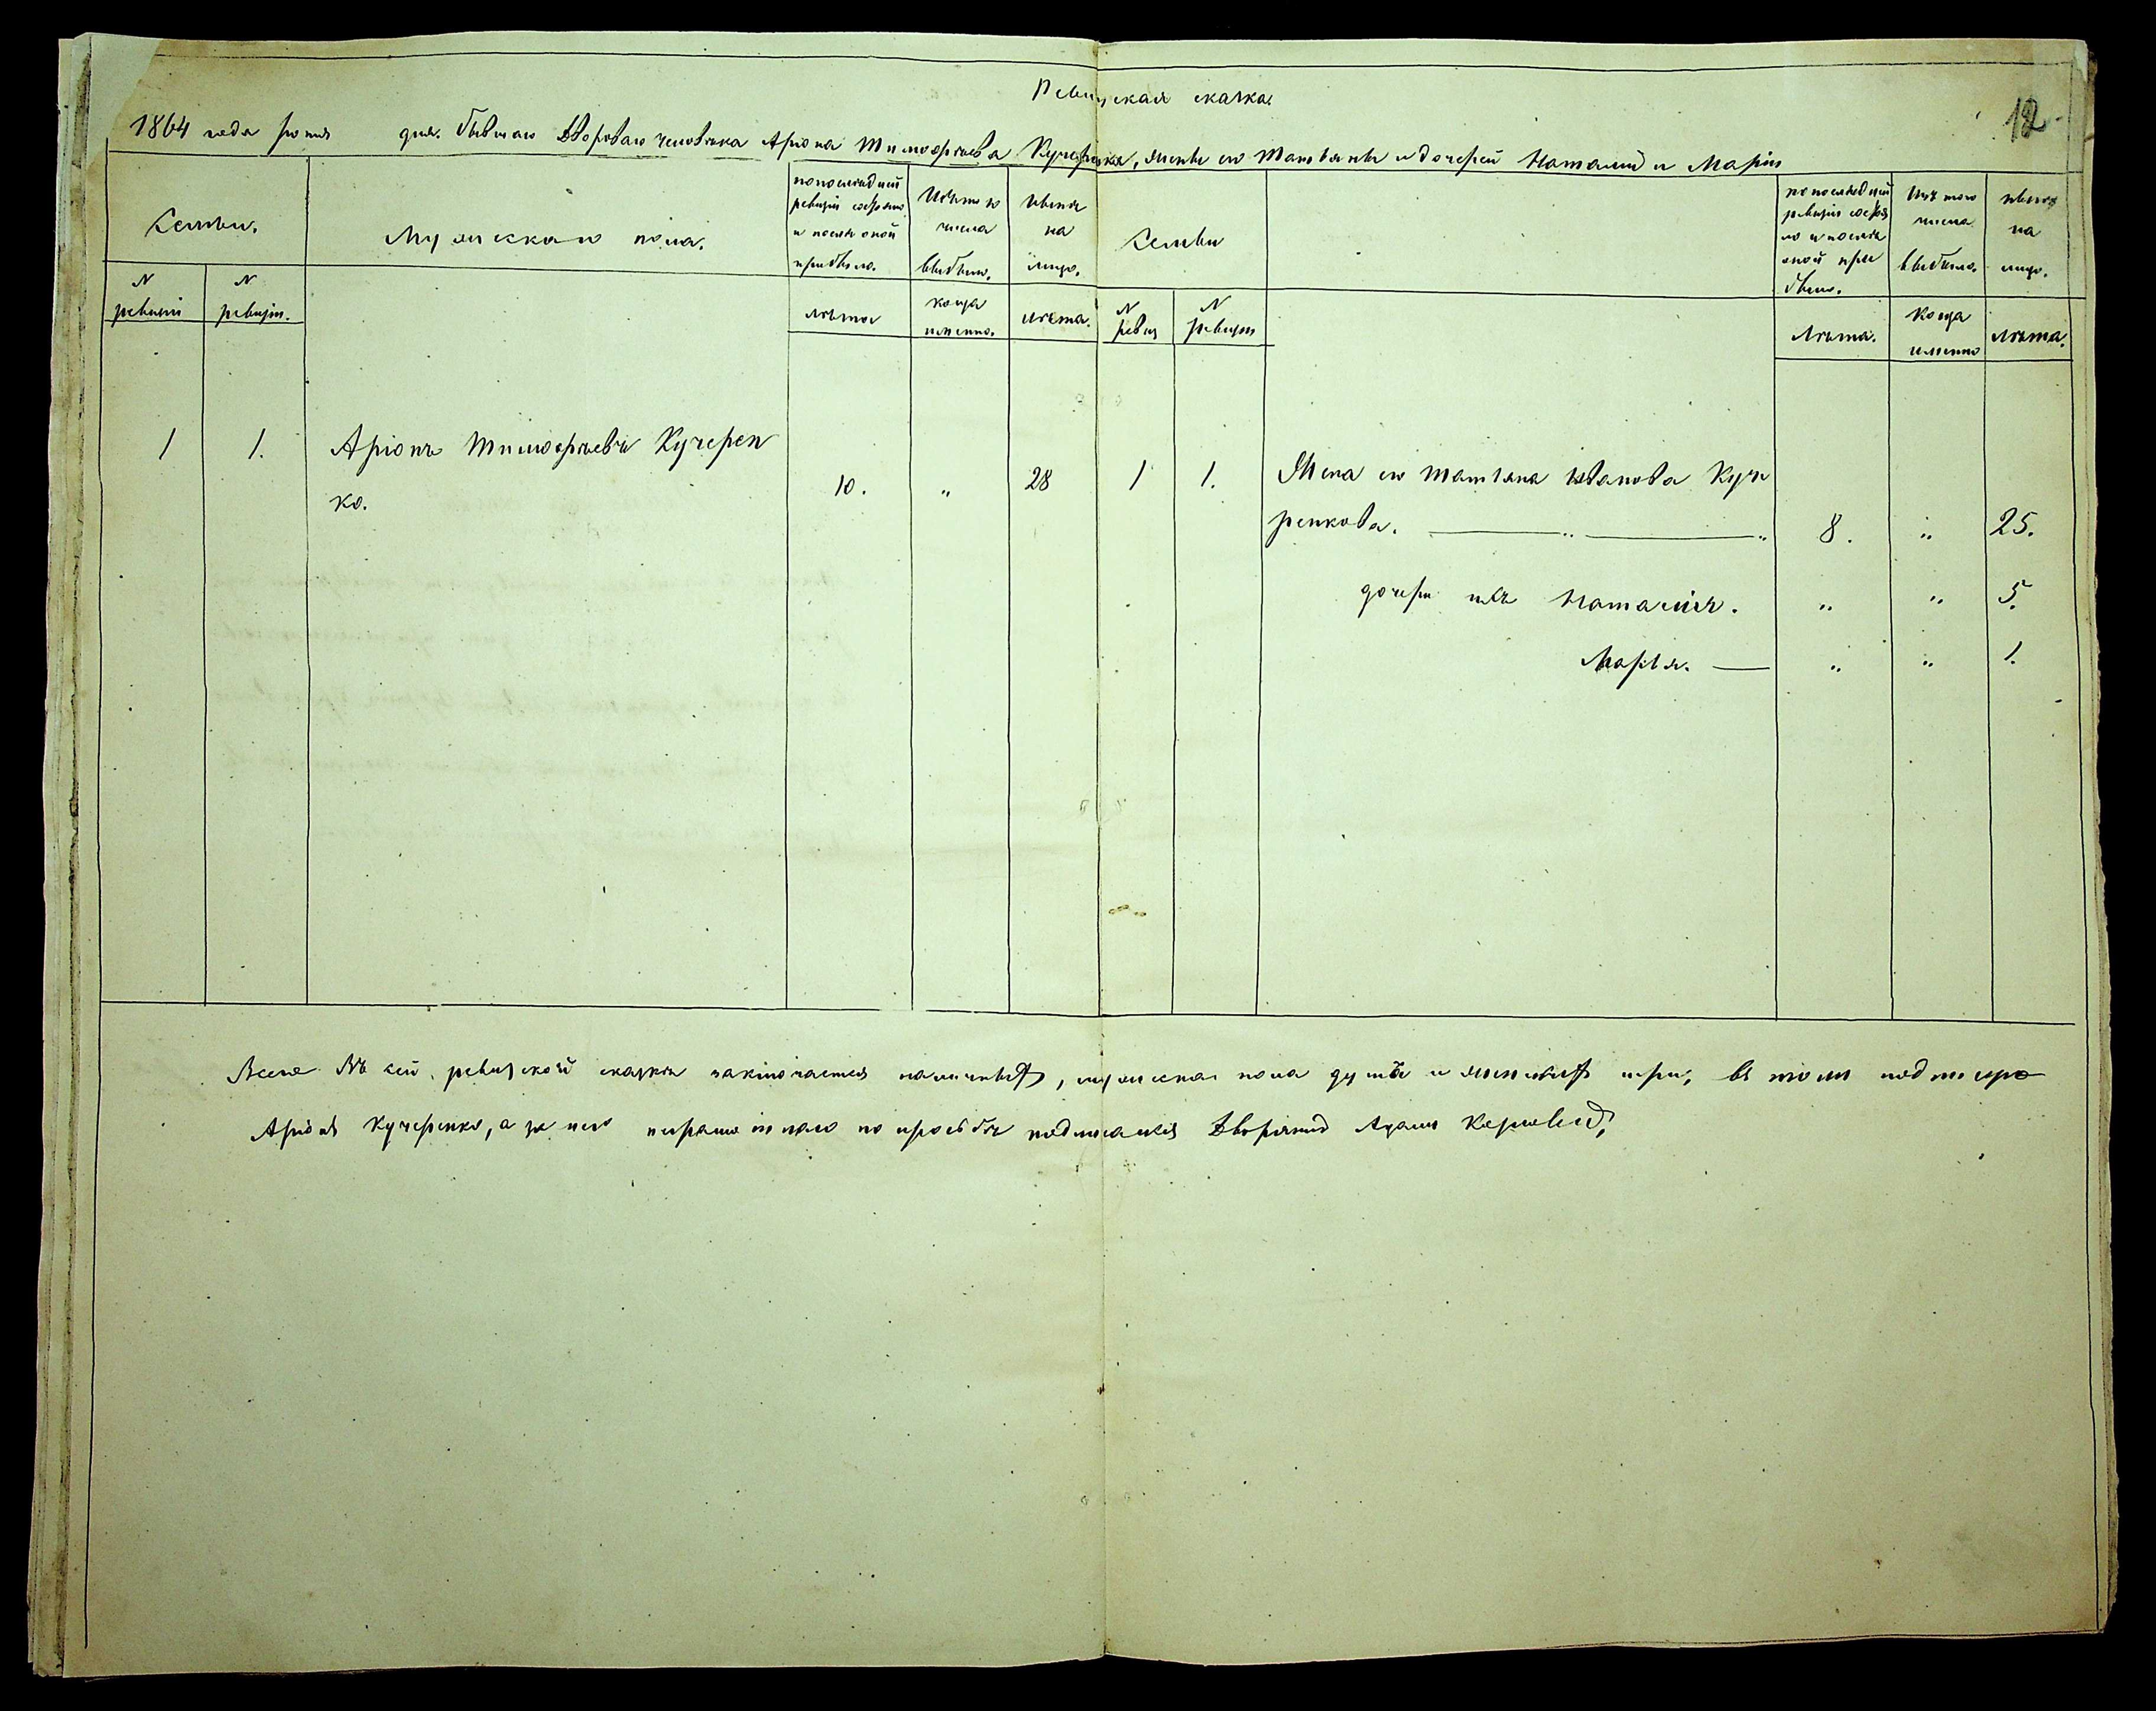 Ревизская сказка.
12
1864 года Іюня дня. бывшаго Двороваго человѣка Аріона Тимофѣева Кучеренка, жены его Татьяны и дочерей Наталіи и Маріи
Семьи.
Мужескаго пола.
по послѣдней ревизіи состояло и послѣ оной прибыло.
Изъ того числа выбыло.
Нынѣ на лицо.
Семьи
по послѣдней ревизіи состояло и послѣ оной прибыло.
Изъ того числа выбыло.
Нынѣ на лицо.
N ревизіи
N ревизіи.
лѣта
когда именно.
лѣта.
N ревиз
N ревизіи
Лѣта.
Когда именно
лѣта.
1 1. Аріонъ Тимофѣевъ Кучерен
ко. 10. " 28
1 1. Жена его Татьяна Иванова Куче
ренкова. 8. " 25.
дочери ихъ Наталія. " " 5.
Марья. " " 1.
Всего въ сей ревизской сказкѣ заключается наличныхъ, мужеска пола душа и женскихъ три, въ томъ подписуюсь
Аріонъ Кучеренко, а за него неграмотнаго по просьбѣ подписался Дворянинъ Адамъ